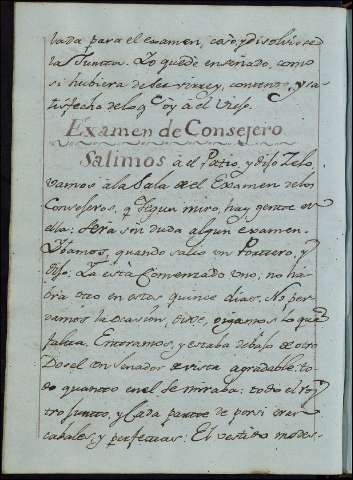 vada para el examen, cayó, y disolvióse
la Junta. Yo quedé enseñado, como
si hubiera de ser virrey, contento, y sa-
tisfecho de lo q.e oy à el Viejo.
Examen de Consejero
Salimos à el Patio, y dijo Zelo,
vamos à la Sala de el Examen de los
Consejeros, q. segun miro, hay gente en
ella: será sin duda algun examen.
Ibamos, quando salió un Portero, y
dijo: Ya está Comenzado uno, no ha-
brá otro en estos quince dias. No per-
damos la ocasion, dixe, oigamos lo que
falta. Entramos, y estaba debajo de otro
Dosel un Senador de vista agradable: to-
do quanto en el se miraba: todo el ros-
tro junto, y Cada parte de por si eran
cabales, y perfectas: El vestido modes-